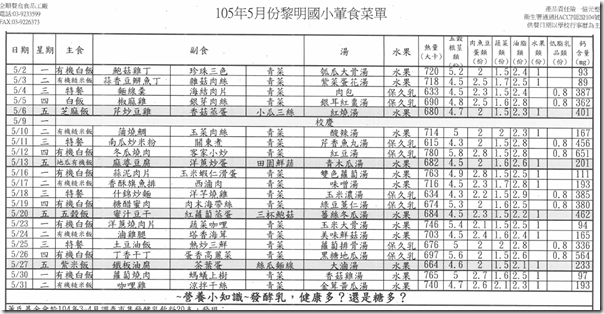 金順餐盒食品工廠
電話:03-9233599
FAX:03-9226373
105年5月份黎明國小葷食菜單
產品責任險一億元整
日期 星期 主食 副食 湯 水果 熱量(大卡) 五穀根莖類(份) 肉魚豆蛋類(份) 蔬菜類(份) 油脂類(份) 水果類(份) 低脂乳品類(份) 鈣含量(mg)
5/2 一 有機白飯 鮑菇雞丁 珍珠三色 青菜 瓠瓜大骨湯 水果 720 5.2 2 1.5 2.4 1 93
5/3 二 有機糙米飯 蒜香豆瓣魚丁 雞蓉肉絲 青菜 紫菜蛋花湯 水果 718 4.5 2.5 1.7 2.5 1 89
5/4 三 特餐 麵線羹 海結肉片 青菜 肉包 保久乳 633 4.5 2.3 1.5 2.4 0.8 387
5/5 四 白飯 椒麻雞 銀芽肉絲 青菜 銀耳紅棗湯 保久乳 690 4.8 2.5 1.6 2.8 0.8 362
5/6 五 芝麻飯 芹炒豆雞 香菇蒸蛋 小瓜三絲 紅燒湯 水果 680 4.7 2 1.5 2.3 1 401
5/9 一 校慶
5/10 二 有機糙米飯 蒲燒鯛 玉菜肉絲 青菜 酸辣湯 水果 714 5 2 2 2.3 1 167
5/11 三 特餐 南瓜炒米粉 關東煮 青菜 芹香魚丸湯 保久乳 615 4.5 2 1.5 2.3 0.8 456
5/12 四 有機白飯 冬瓜燒肉 客家小炒 青菜 紅豆湯 保久乳 780 5.8 2.8 1.5 2.8 0.8 651
5/13 五 地瓜有機飯 麻婆豆腐 洋蔥炒蛋 田園鮮蔬 青木瓜湯 水果 682 4.5 2 1.5 2.6 1 203
5/16 一 有機白飯 蒜泥肉片 玉米蝦仁滑蛋 青菜 雙色蘿蔔湯 水果 763 4.9 2.8 1.5 2.5 1 111
5/17 二 有機糙米飯 香酥旗魚排 西滷肉 青菜 味噌湯 水果 716 4.5 2.3 1.7 2.8 1 193
5/18 三 特餐 什錦炒麵 洋芋燒雞 青菜 玉米濃湯 保久乳 634 4.3 2.2 1.5 2.9 0.8 385
5/19 四 有機白飯 糖醋蜜肉 肉末海帶絲 青菜 綠豆薏仁湯 保久乳 674 5.3 2.2 1.6 2.5 0.8 380
5/20 五 五穀飯 蜜汁豆干 紅蘿蔔蒸蛋 三杯鮑菇 薑絲冬瓜湯 水果 684 4.5 2.3 1.5 2.2 1 462
5/23 一 有機白飯 洋蔥燒肉片 蔬菜咖哩 青菜 玉米大骨湯 水果 746 5.4 2.1 1.5 2.4 1 94
5/24 二 有機糙米飯 油雞腿 塔香海茸 青菜 美味鮮菇湯 水果 703 4.5 2.4 1.6 2.4 1 165
5/25 三 特餐 土豆油飯 熱炒三鮮 青菜 蘿蔔排骨湯 保久乳 676 5 2 2 2.8 0.8 336
5/26 四 有機白飯 丁香干丁 蛋香高麗菜 青菜 黑糖地瓜湯 保久乳 668 5.4 2 1.5 2.6 0.8 564
5/27 五 紫米飯 鐵板油腐 茶葉蛋 絲瓜麵線 大滷湯 水果 664 4.6 2 1.5 2.1 1 233
5/30 一 有機白飯 蘿蔔燒肉 螞蟻上樹 青菜 香菇雞湯 水果 765 5 2.7 1.6 2.2 1 97
5/31 二 有機糙米飯 咖哩雞 涼拌干絲 青菜 金茸黃瓜湯 水果 740 4.7 2.6 2 2.3 1 244
~營養小知識~發酵乳，健康多？還是糖多？